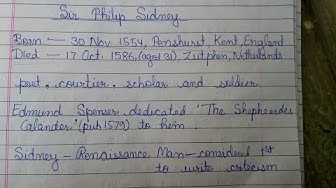 Sir Philip Sidney
Born — 30 Nov 1554, Penshurst, Kent, England
Died — 17 Oct. 1586, (aged 31) Zutphen, Netherlands
poet, courtier, scholar and soldier
Edmund Spenser dedicated 'The Shepheardes
Calander' (pub 1579) to him.
Sidney - Renaissance Man - considered 1st
to write criticism